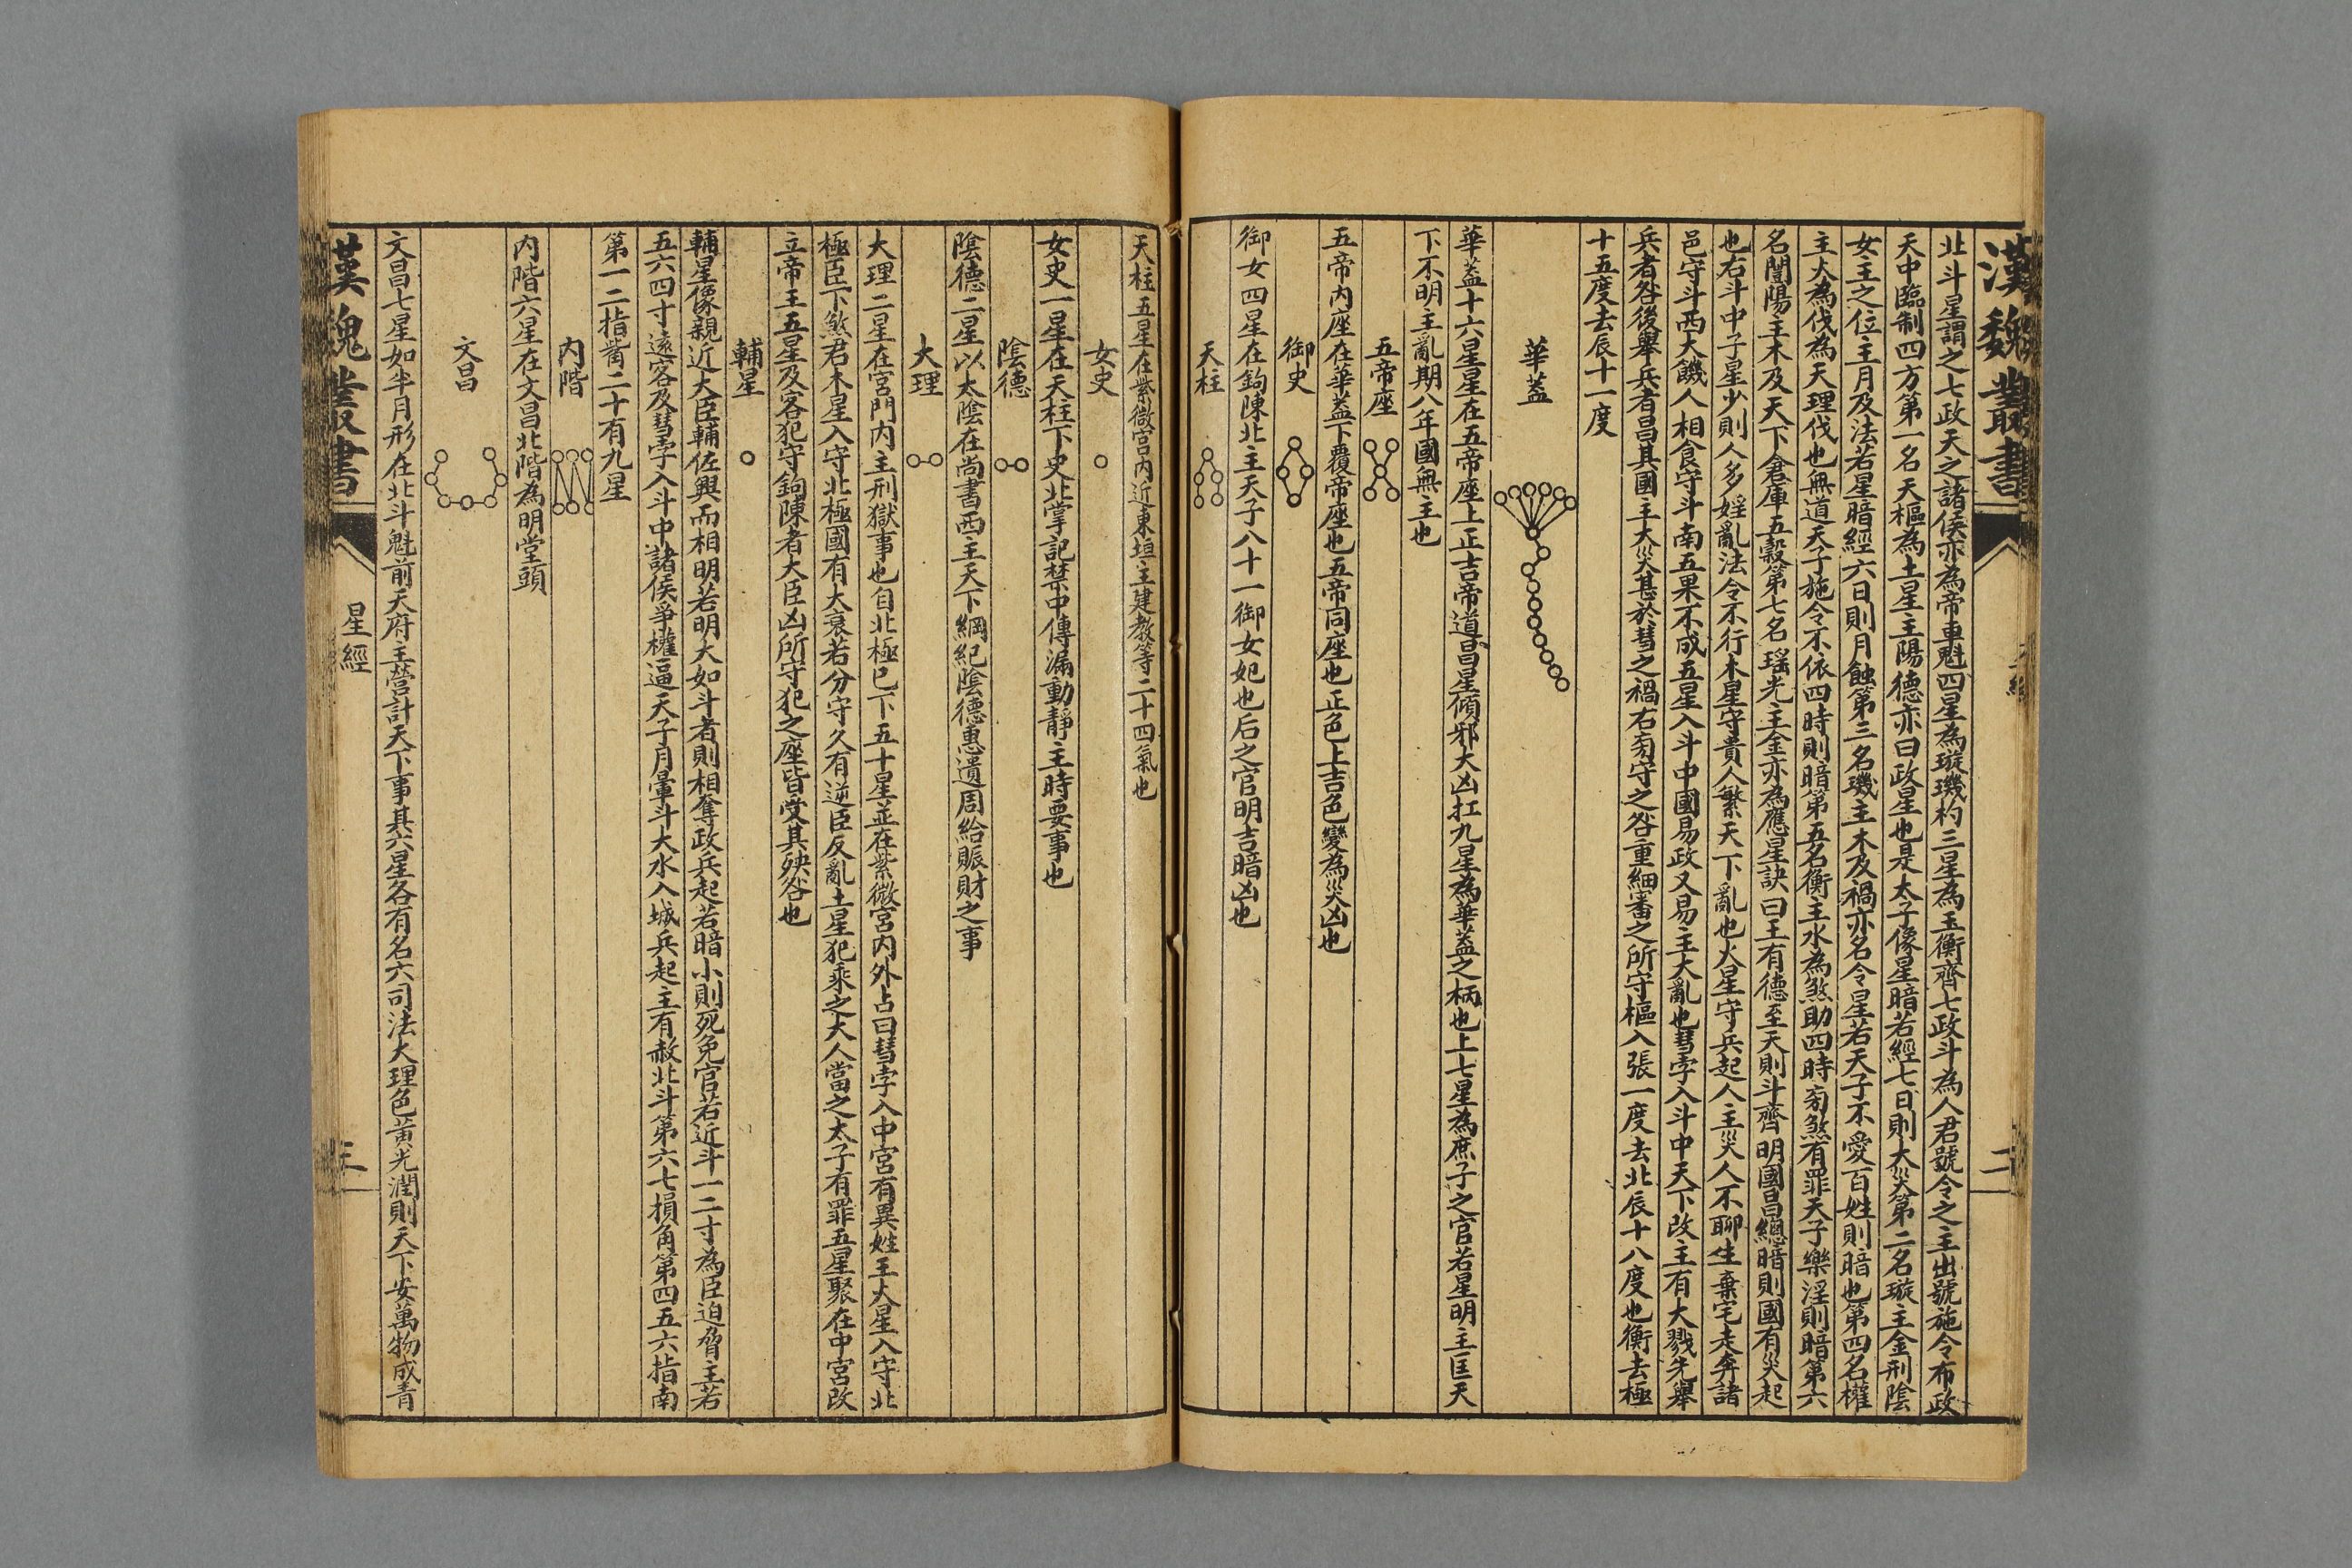 漢魏叢書
二
北斗星謂之七政天之諸侯亦為帝車魁四星為璇璣杓三星為玉衡齊七政斗為人君號令之主出號施令布政
天中臨制四方第一名天樞為土星主陽德亦曰政星也是太子像星暗若經七日則大災第二名璇主金刑陰
女主之位主月及法若星暗經六日則月蝕第三名璣主木及禍亦名令星若天子不愛百姓則暗也第四名權
主火為伐為天理伐也無道天子施令不依四時則暗第五名衡主水為煞助四時㫄煞有罪天子樂淫則暗第六
名闓陽主木及天下倉庫五穀第七名瑶光主金亦為應星訣曰王有德至天則斗齊明國昌總暗則國有災起
也右斗中子星少則人多婬亂法令不行木星守貴人繁天下亂也火星守兵起人主災人不聊生棄宅走奔諸
邑守斗西大饑人相食守斗南五果不成五星入斗中國易政又易主大亂也彗孛入斗中天下改主有大戮先舉
兵者咎後舉兵者昌其國主大災甚於彗之禍右㫄守之咎重細審之所守樞入張一度去北辰十八度也衡去極
十五度去辰十一度
華蓋
華蓋十六星星在五帝座上正吉帝道昌星傾邪大凶扛九星為華蓋之柄也上七星為庶子之官若星明主匡天
下不明主亂期八年國無主也
五帝座
五帝内座在華蓋下覆帝座也五帝同座也正色上吉色變為災凶也
御史
御女四星在鉤陳北主天子八十一御女妃也后之官明吉暗凶也
天柱
天柱五星在紫微宮内近東垣主建教等二十四氣也
女史
女史一星在天柱下史北掌記禁中傳漏動靜主時要事也
陰德
陰德二星以太陰在尚書西主天下綱紀陰德惠遺周給賑財之事
大理
大理二星在宮門内主刑獄事也自北極已下五十星並在紫微宮内外占曰彗孛入中宮有異姓王大星入守北
極臣下煞君木星入守北極國有大衰若分守久有逆臣反亂土星犯乘之大人當之太子有罪五星聚在中宮改
立帝王五星及客犯守鉤陳者大臣凶所守犯之座皆受其殃咎也
輔星
輔星像親近大臣輔佐興而相明若明大如斗者則相奪政兵起若暗小則死免官若近斗一二寸為臣迫脅主若
五六四寸遠客及彗孛入斗中諸侯爭權逼天子月暈斗大水入城兵起主有赦北斗第六七損角第四五六指南
第一二指觜二十有九星
内階
内階六星在文昌北階為明堂頭
文昌
文昌七星如半月形在北斗魁前天府主營計天下事其六星各有名六司法大理色黃光潤則天下安萬物成青
漢魏叢書
星經
三